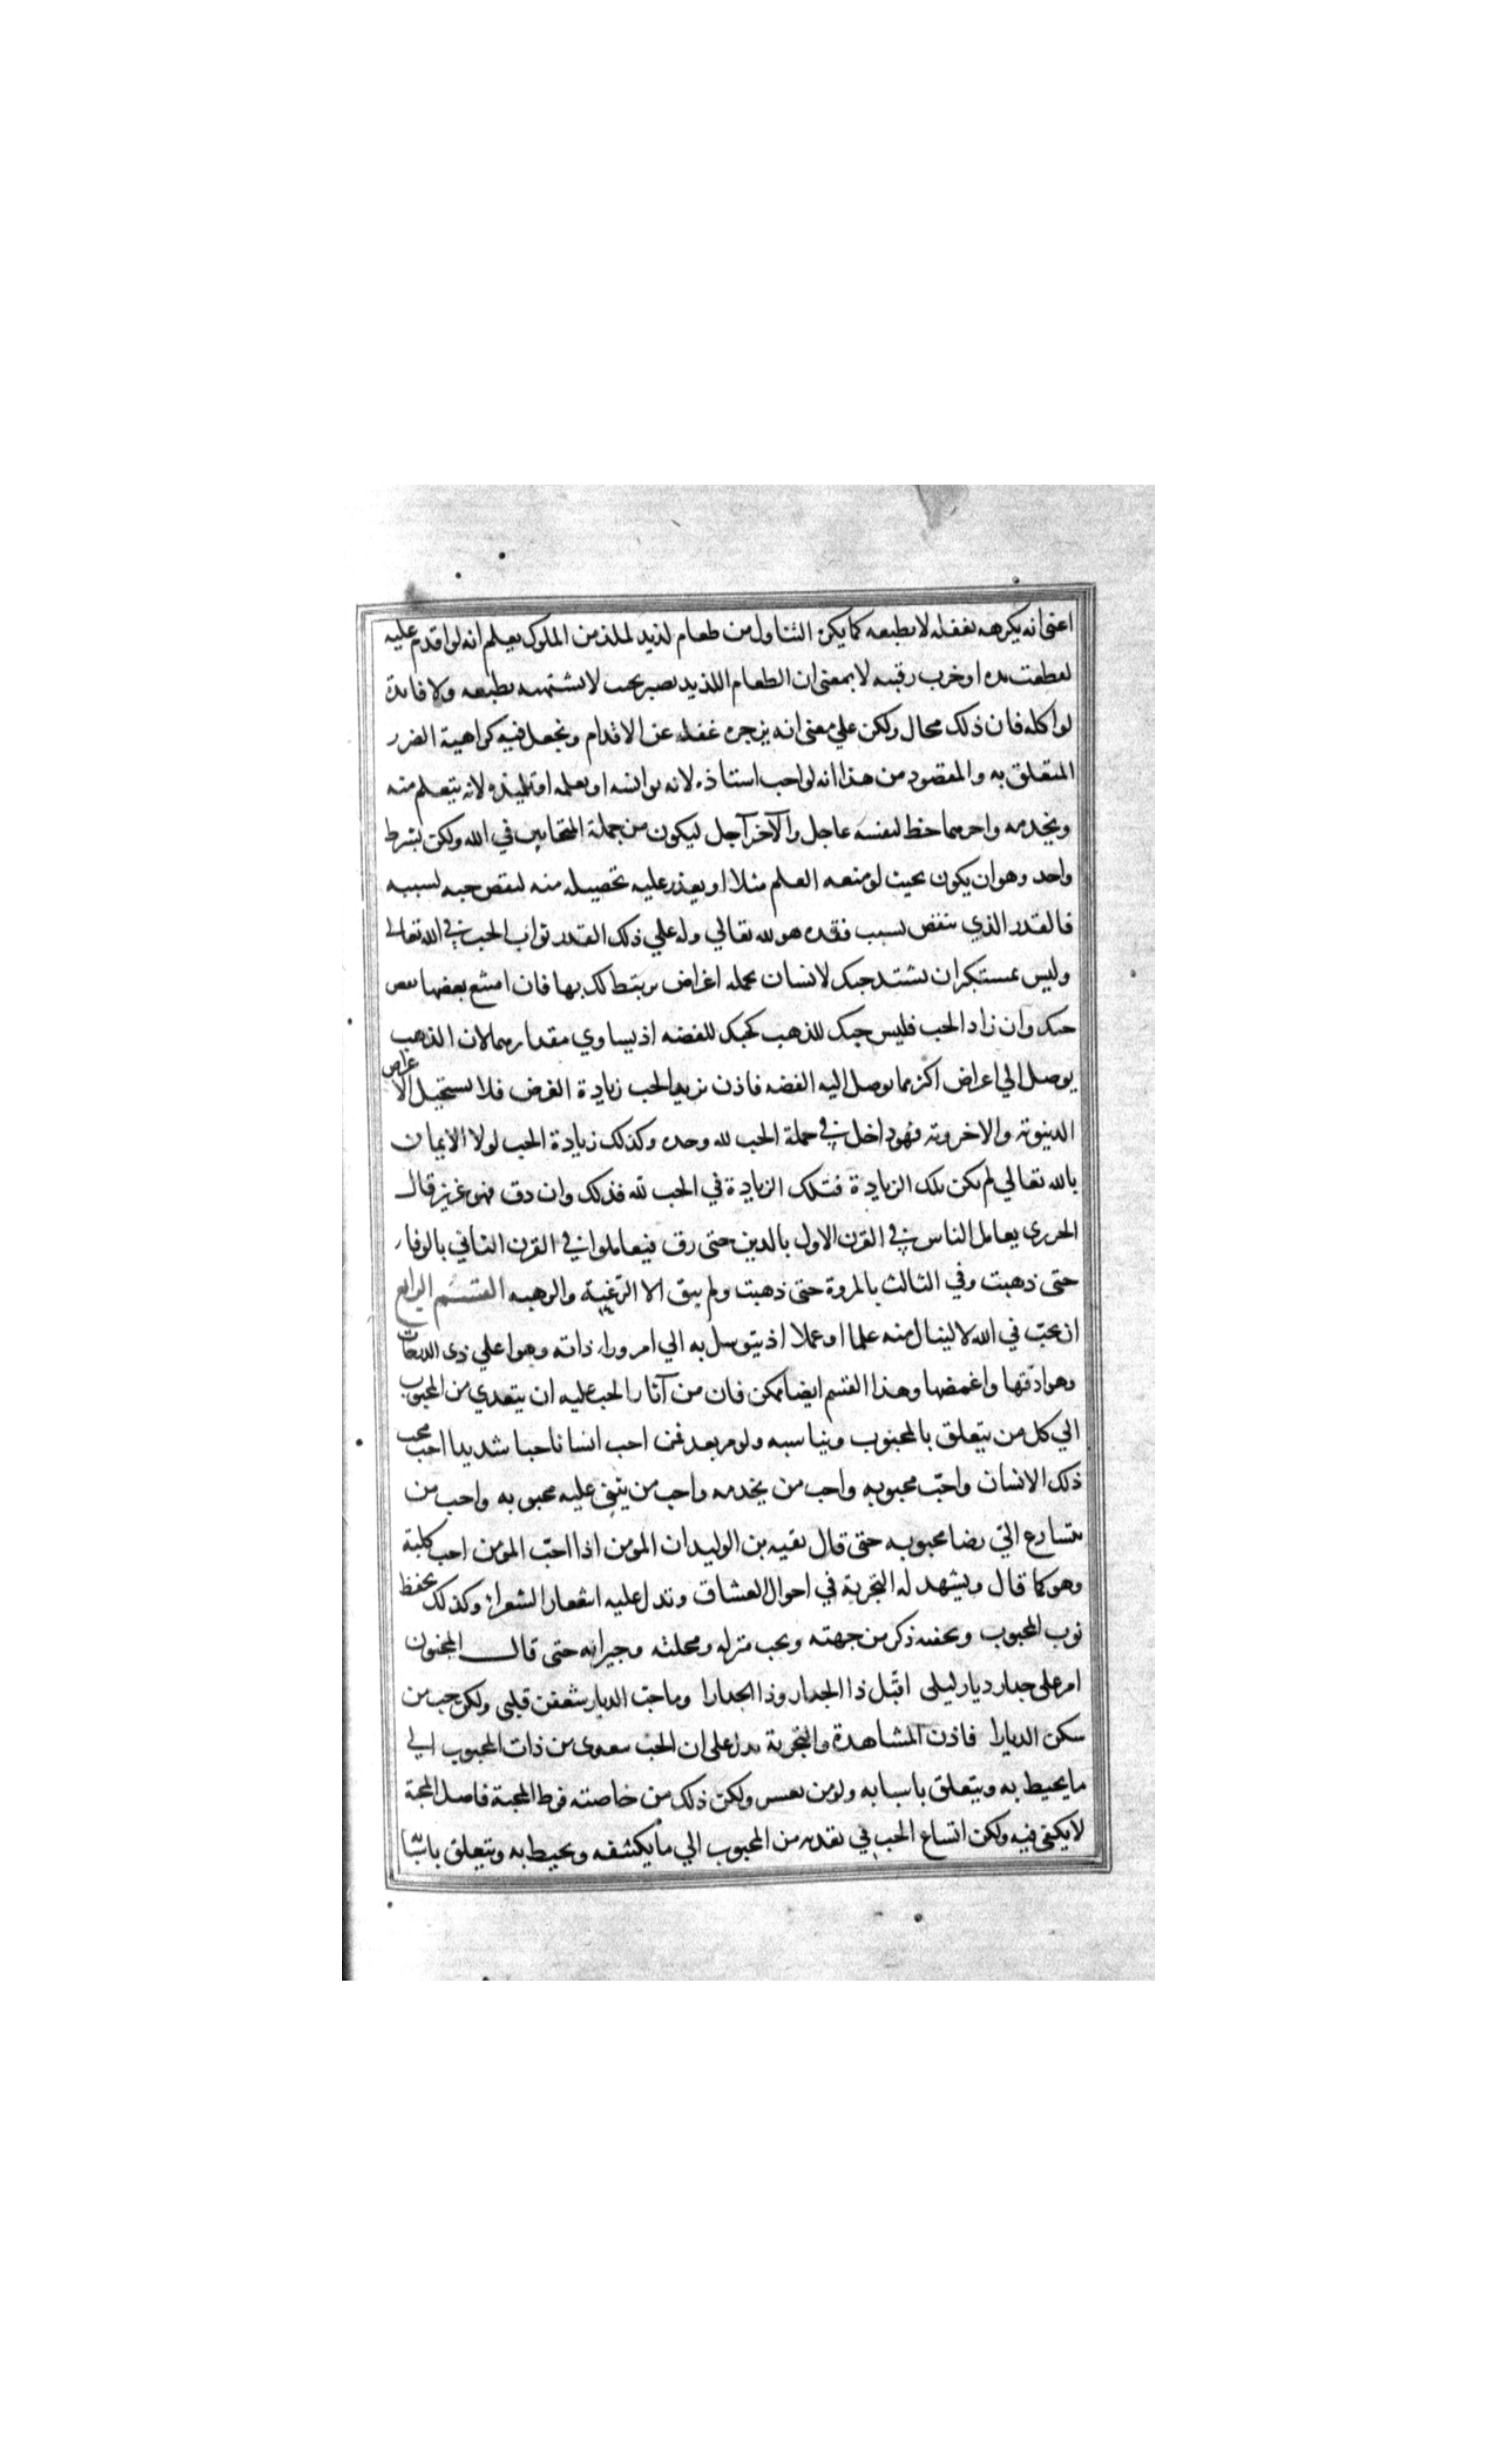 اعنى انه يكرهه بعقله لا بطبعه كما يكره التناول من طعام لذيذ لملك من الملوك يعلم انه لو اقدم عليه
لقطعت يده او خرب رقبته لا بمعنى ان الطعام اللذيذ يصير بحيث لا يشتهيه بطبعه ولا
لو اكله فان ذلك محال ولكن علي معنى انه يزجره عقله عن الاقدام ويجعل فيه كراهية الضرر
المتعلق به والمقصود من هذا انه لو احب استاذه لانه يواسيه او يعلمه او تلميذه لانه يتعلم منه
ويخدمه واحدهما حظ لنفسه عاجل والآخر آجل ليكون من جملة المتحابين في الله ولكن بشرط
واحد وهو ان يكون بحيث لو منعه العلم مثلا او يعذر عليه تحصيله منه لنقص حبه بسببه
فالقدر الذي ينقص بسبب فقده هو لله تعالي وله علي ذلك القدر ثواب الحب في الله تعالى
وليس بمستنكر ان يشتد حبك لانسان بجملة اغراض يرتبط لك بها فان امتنع بعضها نقص
حبك وان زاد الحب فليس حبك للذهب كحبك للفضه اذ يساوي مقدارهما لان الذهب
يوصل الي اغراض اكثر مما يوصل اليه الفضه فاذن يزيد الحب زيادة الغرض فلا يستحيل الاغراض
الدنيوية والاخروية فهو داخل في جملة الحب لله وحده وكذلك زيادة الحب لولا الايمان
بالله تعالي لم يكن تلك الزيادة فتلك الزيادة في الحب لله فذلك وان دق فهو عزيز قال
الجريري يعامل الناس في القرن الاول بالدين حتى رق فيعاملوا في القرن الثاني بالوفاء
حتى ذهبت وفي الثالث بالمروة حتى ذهبت ولم يبق الا الرغبة والرهبه القسم الرابع
ان يحب في الله لا لينال منه علما او عملا اذ يتوسل به الي امر وراء ذاته وهو اعلي ذى الدرجات
وهو ادقها واغمضها وهذا القسم ايضا ممكن فان من آثار الحب عليه ان يتعدي من المحبوب
الي كل من يتعلق بالمحبوب ويناسبه ولو من بعد فمن احب انسانا حبا شديدا احب محب
ذلك الانسان واحب محبوبه واحب من يخدمه واحب من يثني عليه محبوبه واحب من
يتسارع الي رضا محبوبه حتى قال بقيه بن الوليد ان المؤمن اذا احب المؤمن احب كلبه
وهو كما قال ويشهد له التجربة في احوال العشاق وتدل عليه اشعار الشعراء وكذلك يحفظ
ثوب المحبوب ذكر من جهته ويحب منزله ومحلته وجيرانه حتى قال المجنون
امر على جدار ديار ليلى اقبل ذا الجدار وذا الجدارا وما حب الديار شغفن قلبى ولكن حب من
سكن الديارا فاذن المشاهدة والتجربة يدل على ان الحب يتعدى من ذات المحبوب الي
ما يحيط به ويتعلق باسبابه ولو من ولكن ذلك من خاصته فرط المحبة فاصل المحبة
لا يكفى فيه ولكن اتساع الحب في تعديه من المحبوب الي ما يكشفه ويحيط به ويتعلق باسبابه